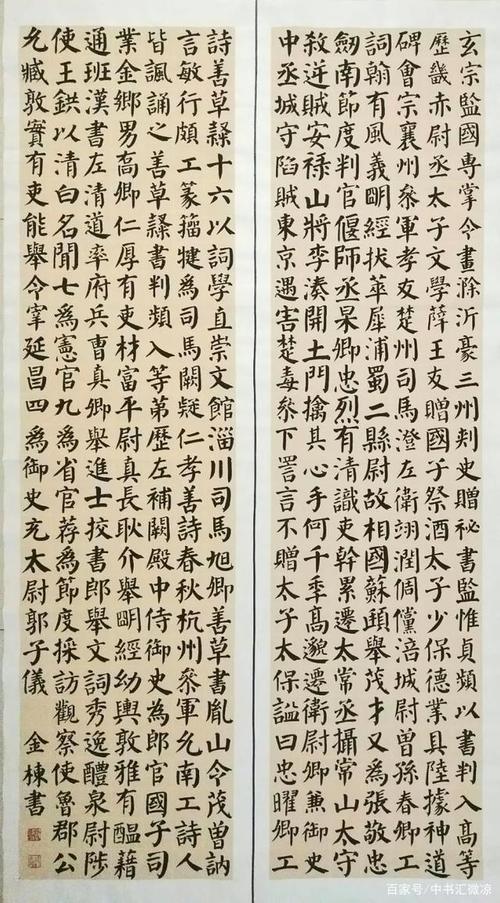 玄宗監國専掌令畫滁沂豪三州刾史贈祕書監惟貞頻以書判入高等
歷畿赤尉丞太子文學薛王友贈國子祭酒太子少保德業具陸據神道
碑會宗襄州叅軍孝友楚州司馬澄左衛翊潤倜儻涪城尉曾孫春卿工
詞翰有風義明經拔萃犀浦蜀二縣尉故相國蘇頲舉茂才又為張敬忠
劒南節度判官偃師丞杲卿忠烈有清識吏幹累遷太常丞攝常山太守
殺逆賊安禄山將李湊開土門擒其心手何千秊高邈遷衛尉卿兼御史
中丞城守陷賊東京遇害楚毒叅下詈言不贈太子太保謚曰忠曜卿工
詩善草隸十六以詞學直崇文館淄川司馬旭卿善草書胤山令茂曾訥
言敏行頗工篆籀犍為司馬闕疑仁孝善詩春秋杭州叅軍允南工詩人
皆諷誦之善草隸書判頻入等第歷左補闕殿中侍御史為郎官國子司
業金鄉男喬卿仁厚有吏材富平尉真長耿介舉明經幼輿敦雅有醞藉
通班漢書左清道率府兵曹真卿舉進士挍書郎舉文詞秀逸醴泉尉陟
使王鉷以清白名聞七為憲官九為省官荐為節度採訪觀察使魯郡公
允臧敦實有吏能舉令宰延昌四為御史充太尉郭子儀 金棟書
百家号/中书汇微凉